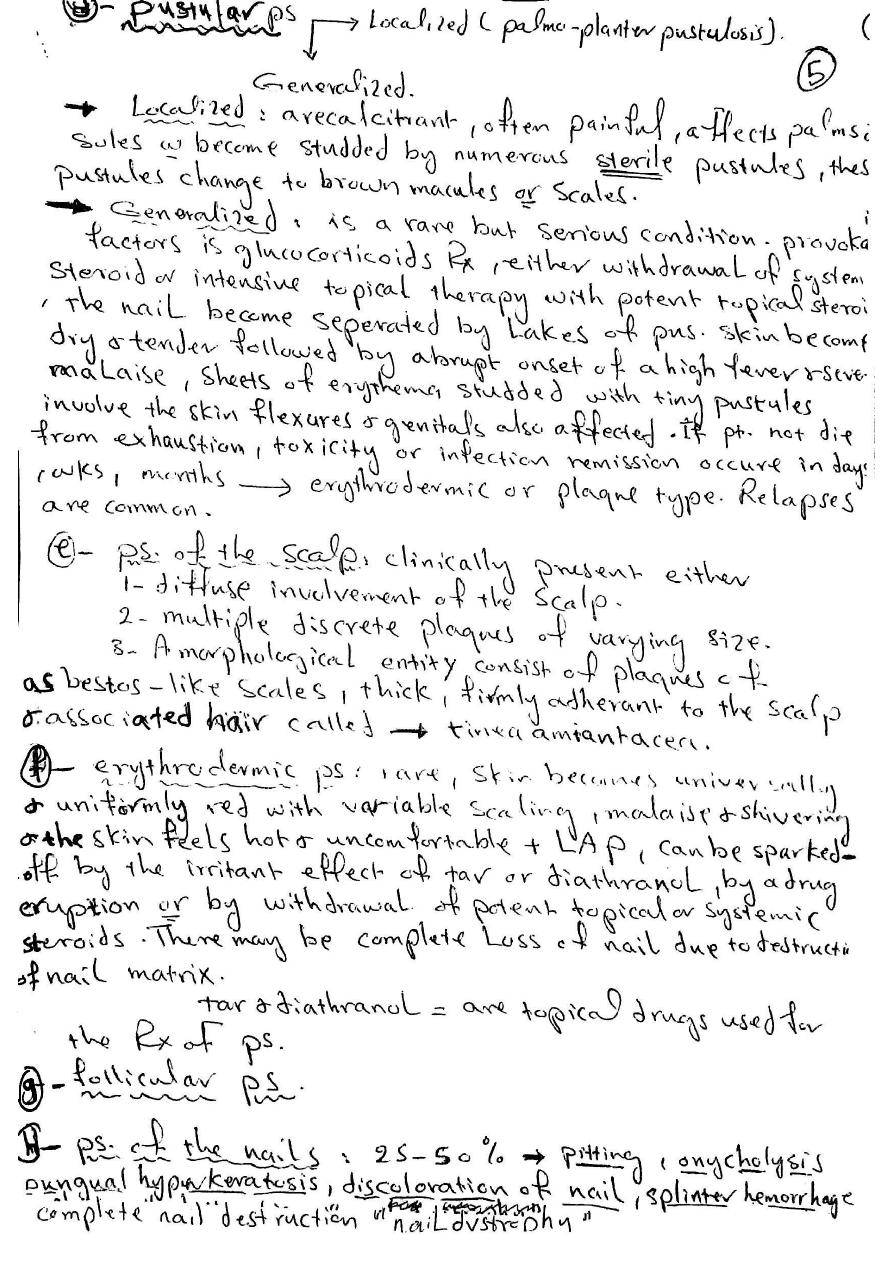 d- Pustular ps → Localized ( palmo-planter pustulosis).
Generalized.
5
→ Localized : a recalcitrant , often painful , affects palms
soles w become studded by numerous sterile pustules , thes
pustules change to brown macules or scales.
→ Generalized : is a rare but serious condition. provoka
factors is glucocorticoids Rx , either withdrawal of system
steroid or intensive topical therapy with potent topical steroi
, the nail become seperated by Lakes of pus. skin become
dry & tender followed by abrupt onset of a high fever & seve
malaise , sheets of erythema studded with tiny pustules
involve the skin flexures & genitals also affected . If pt. not die
from exhaustion , toxicity or infection remission occure in days
, months → erythrodermic or plaque type. Relapses
are common.
e- ps. of the scalp: clinically present either
1- diffuse involvement of the scalp.
2- multiple discrete plaques of varying size.
3- A morphological entity consist of plaques of
asbestos-like scales , thick , firmly adherant to the scalp
& associated hair called → tinea amiantacea.
f- erythrodermic ps : rare , skin becomes universally
& uniformly red with variable scaling , malaise & shivering
& the skin feels hot & uncomfortable + LAP , can be sparked-
off by the irritant effect of tar or diathranol , by a drug
eruption or by withdrawal of potent topical or systemic
steroids . There may be complete Loss of nail due to destructi
of nail matrix.
tar & diathranol = are topical drugs used for
the Rx of ps.
g- follicular ps.
H- ps. of the nails : 25-50% → pitting , onycholysis
hyperkeratosis , discoloration of nail , splinter hemorrhage
complete nail destruction "nail dystrophy"